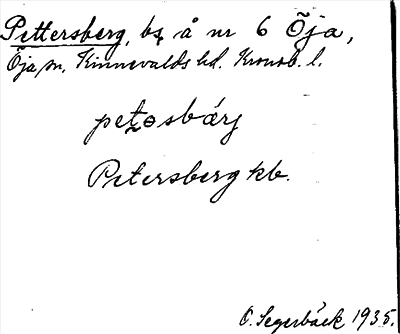 Pettersberg, bs å nr 6 Öja,
Öja sn, Kinnevalds hd. Kronob. l.
petəsbärj
Petersberg kb.
O. Segerbäck 1935.